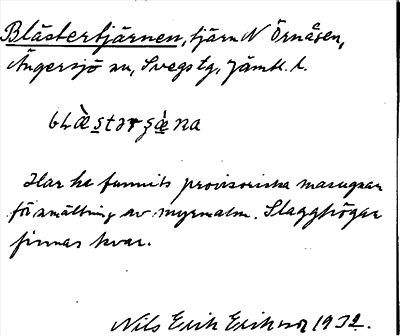 Blästertjärnen, tjärn N Örnåsen,
Ängersjö sn, Svegs tg, Jämtl. l.
bLæ̀stərʂæ̀na
Här ha funnits provisoriska masugnar
för smältning av myrmalm. Slagghögar
finnas kvar.
Nils Erik Eriksson 1932.